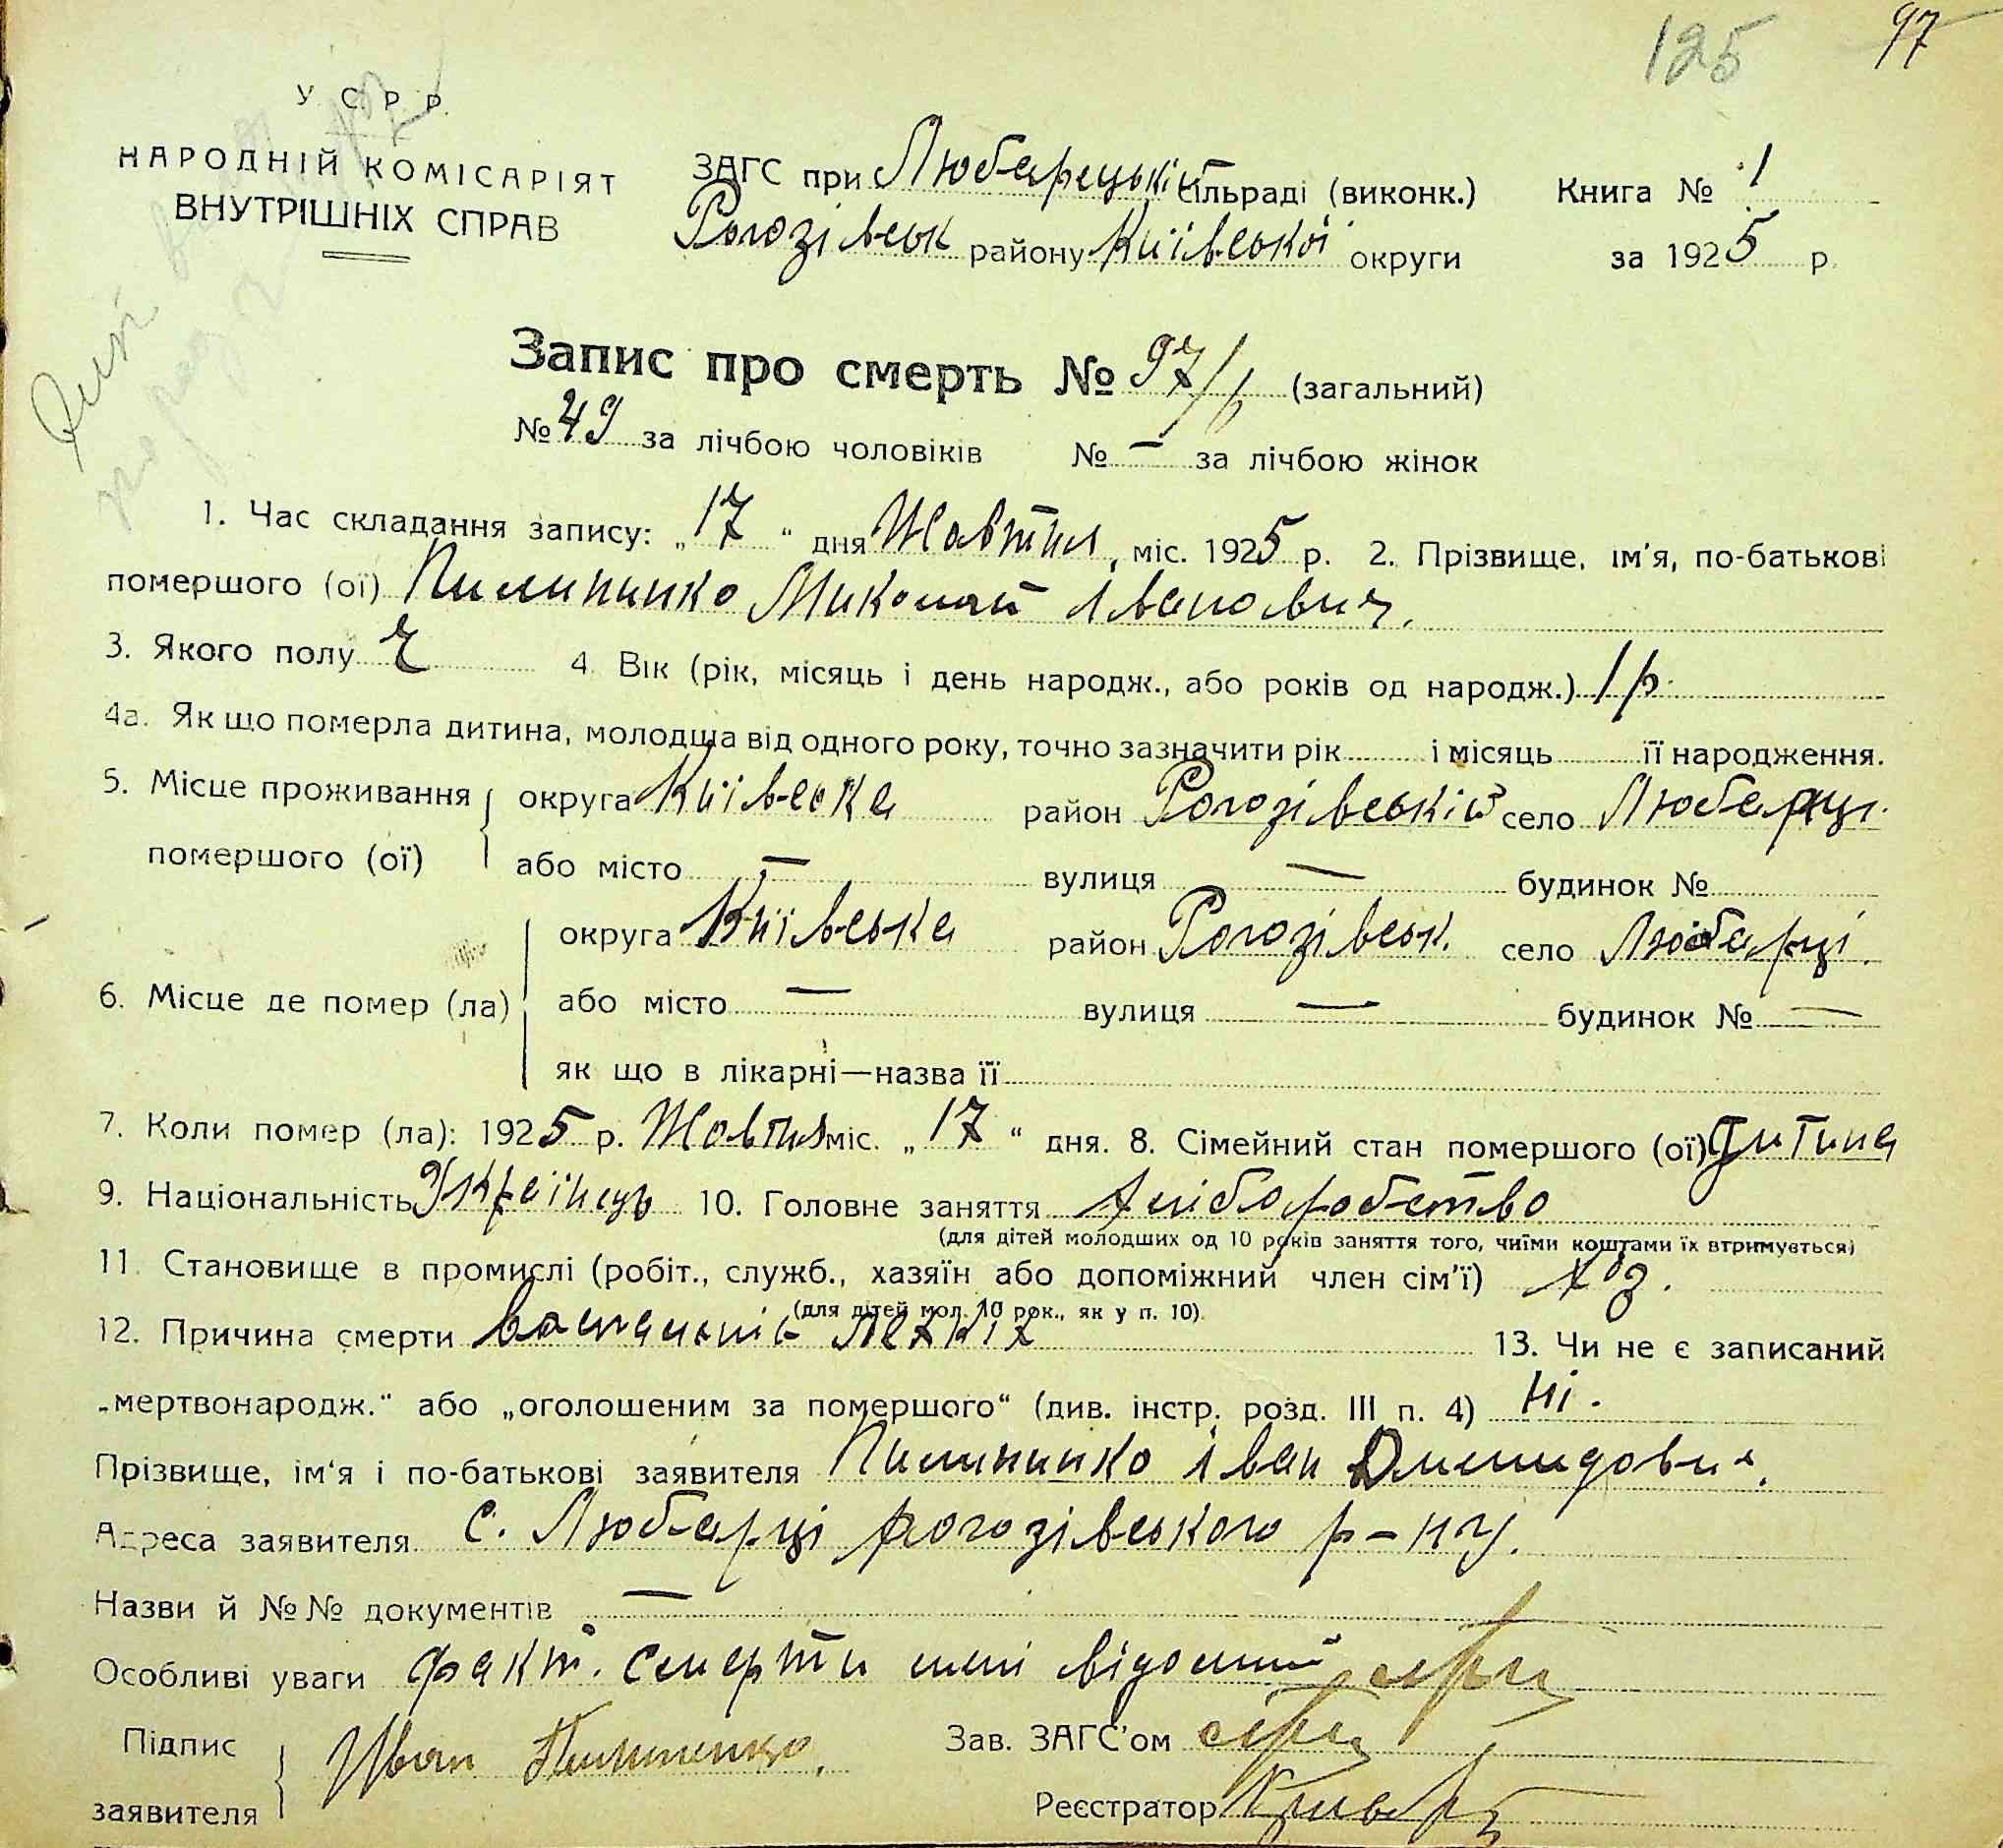 125 97
У С Р Р.
НАРОДНІЙ КОМІСАРІЯТ
ВНУТРІШНІХ СПРАВ
ЗАГС при Любарецькій сільраді (виконк.) Книга № 1
Рогозівськ району Київської округи за 1925 р.
Запис про смерть № 97 (загальний)
№ 49 за лічбою чоловіків № — за лічбою жінок
1. Час складання запису: „17“ дня Жовтня, міс. 1925 р. 2. Прізвище, ім'я, по-батькові
помершого (ої) Пилипинко Миколай Іванович.
3. Якого полу Ч 4. Вік (рік, місяць і день народж., або років од народж.) 1 р.
4а. Як що померла дитина, молодша від одного року, точно зазначити рік і місяць її народження.
5. Місце проживання помершого (ої) округа Київська район Рогозівській село Любарці.
або місто — вулиця — будинок №
6. Місце де помер (ла) округа Київська район Рогозівськ. село Любарці.
або місто — вулиця — будинок № —
як що в лікарні—назва її
7. Коли помер (ла): 1925 р. Жовтня міс. „17“ дня. 8. Сімейний стан помершого (ої) дитина
9. Національність Українець 10. Головне заняття хліборобство
(для дітей молодших од 10 років заняття того, чиїми коштами їх втримується)
11. Становище в промислі (робіт., служб., хазяїн або допоміжний член сім'ї) хоз.
(для дітей мол. 10 рок., як у п. 10).
12. Причина смерти легких 13. Чи не є записаний
„мертвонародж.“ або „оголошеним за помершого“ (див. інстр. розд. III п. 4) ні.
Прізвище, ім'я і по-батькові заявителя Пилипинко Іван
Адреса заявителя с. Любарці рогозівського р-ну.
Назви й №№ документів —
Особливі уваги факт. смерти мені відомий
Підпис заявителя Иван Пилипенко. Зав. ЗАГС'ом
Реєстратор